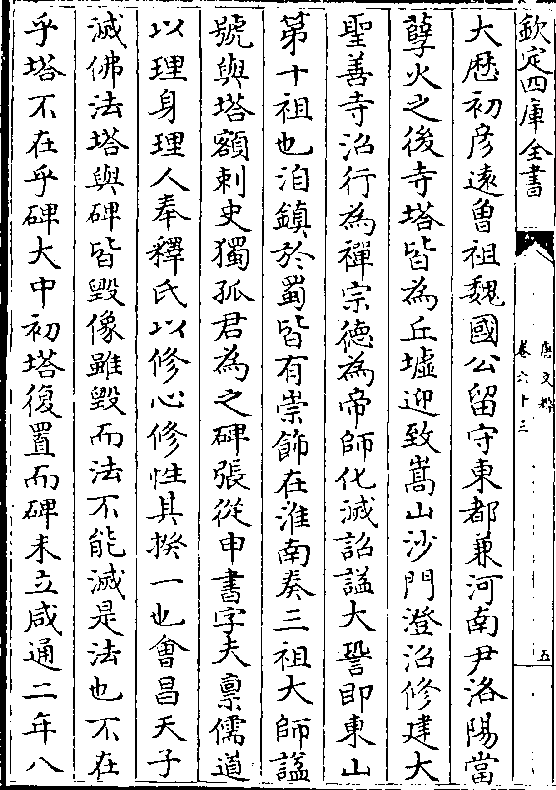 欽定四庫全書
唐文粹
卷六十三
五
大歴初彦遠曽祖魏國公留守東都兼河南尹洛陽當
孽火之後寺塔皆為丘墟迎致嵩山沙門澄沼修建大
聖善寺沼行為禪宗德為帝師化滅詔諡大誓即東山
第十祖也洎鎮於蜀皆有崇飾在淮南奏三祖大師諡
號與塔額刺史獨孤君為之碑張從申書字夫禀儒道
以理身理人奉釋氏以修心修性其揆一也會昌天子
滅佛法塔與碑皆毀像雖毀而法不能滅是法也不在
乎塔不在乎碑大中初塔復置而碑未立咸通二年八